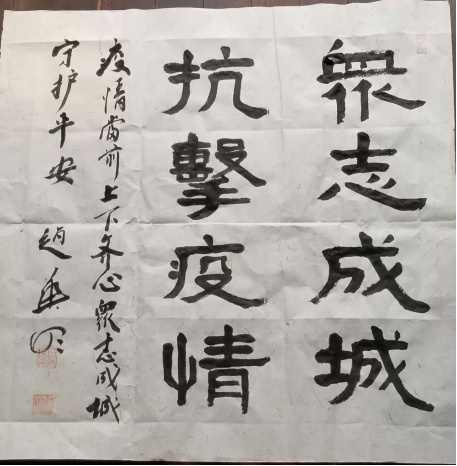 眾志成城
抗擊疫情
疫情當前上下齐心眾志成城
守护平安